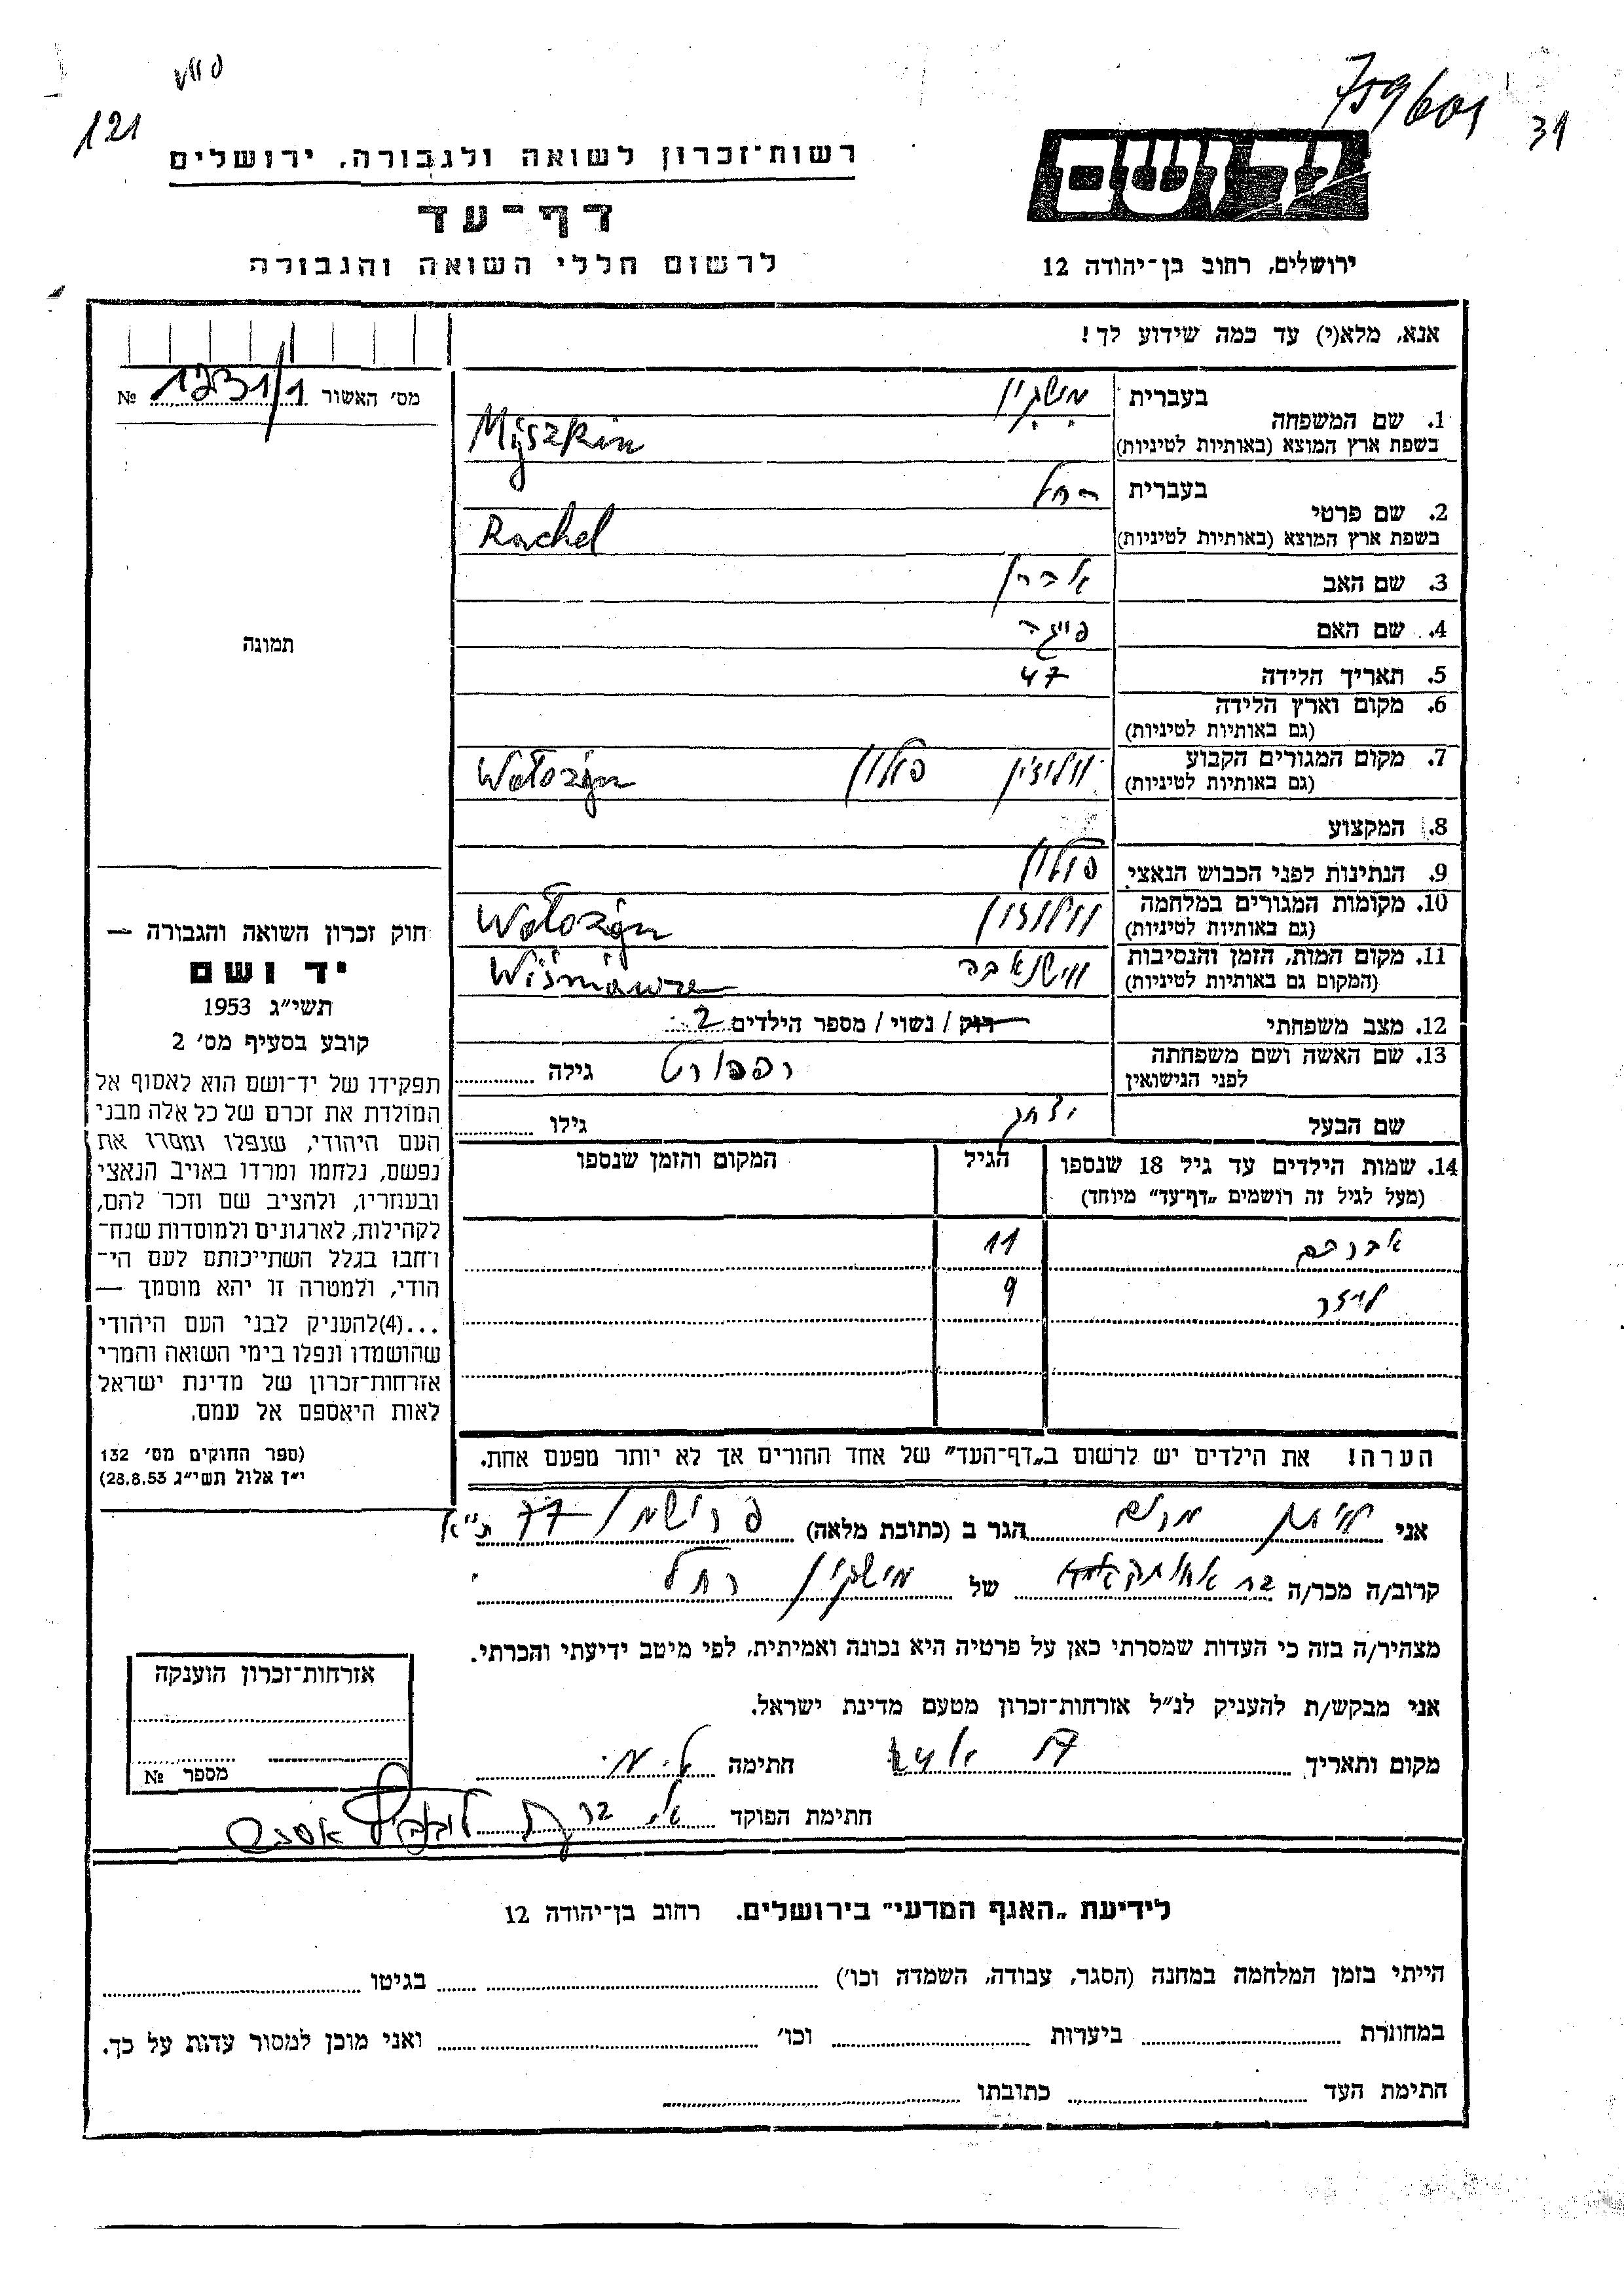 759601
31
121
יד ושם
רשות־זכרון לשואה ולגבורה, ירושלים
דף־עד
ירושלים, רחוב בן־יהודה 12
לרשום חללי השואה והגבורה
אנא, מלא(י) עד כמה שידוע לך!
מס׳ האשור 1231/1 №
תמונה
חוק זכרון השואה והגבורה —
יד ושם
תשי״ג 1953
קובע בסעיף מס׳ 2
תפקידו של יד־ושם הוא לאסוף אל
המולדת את זכרם של כל אלה מבני
העם היהודי, שנפלו ומסרו את
נפשם, נלחמו ומרדו באויב הנאצי
ובעוזריו, ולהציב שם וזכר להם,
לקהילות, לארגונים ולמוסדות שנח־
רבו בגלל השתייכותם לעם הי־
הודי, ולמטרה זו יהא מוסמך —
...(4)להעניק לבני העם היהודי
שהושמדו ונפלו בימי השואה והמרי
אזרחות־זכרון של מדינת ישראל
לאות היאספם אל עמם.
(ספר החוקים מס׳ 132
י״ז אלול תשי״ג 28.8.53)
בעברית מישקין
1. שם המשפחה
בשפת ארץ המוצא (באותיות לטיניות) Mijszkin
בעברית רחל
2. שם פרטי
בשפת ארץ המוצא (באותיות לטיניות) Rachel
3. שם האב אהרן
4. שם האם פייגה
5. תאריך הלידה 47
6. מקום וארץ הלידה
(גם באותיות לטיניות)
7. מקום המגורים הקבוע וולוז׳ין פולין Wołożyn
(גם באותיות לטיניות)
8. המקצוע
9. הנתינות לפני הכבוש הנאצי פולין
10. מקומות המגורים במלחמה וולוזין Wołożyn
(גם באותיות לטיניות)
11. מקום המות, הזמן והנסיבות ווישנאבה Wiśniawze
(המקום גם באותיות לטיניות)
12. מצב משפחתי רוק / נשוי / מספר הילדים 2
13. שם האשה ושם משפחתה רפפורט גילה
לפני הנישואין
שם הבעל יצחק גילו
14. שמות הילדים עד גיל 18 שנספו הגיל המקום והזמן שנספו
(מעל לגיל זה רושמים „דף־עד״ מיוחד)
אברהם 11
לייזר 9
הערה! את הילדים יש לרשום ב„דף־העד״ של אחד ההורים אך לא יותר מפעם אחת.
אני הגר ב (כתובת מלאה) 77 ת״א
קרוב/ה מכר/ה של מישקין רחל
מצהיר/ה בזה כי העדות שמסרתי כאן על פרטיה היא נכונה ואמיתית, לפי מיטב ידיעתי והכרתי.
אני מבקש/ת להעניק לנ״ל אזרחות־זכרון מטעם מדינת ישראל.
מקום ותאריך חתימה
חתימת הפוקד
אזרחות־זכרון הוענקה
מספר №
לידיעת „האגף המדעי״ בירושלים. רחוב בן־יהודה 12
הייתי בזמן המלחמה במחנה (הסגר, עבודה, השמדה וכו׳) בגיטו
במחתרת ביערות וכו׳ ואני מוכן למסור עדות על כך.
חתימת העד כתובתו